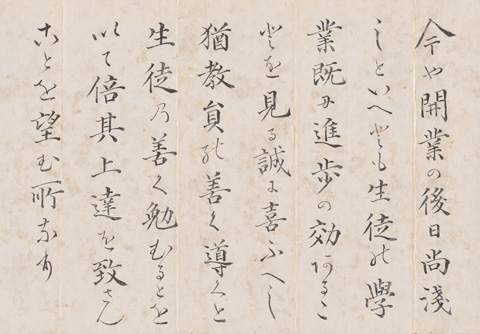 今や開業の後日尚淺
しといへとも生徒の學
業既に進歩の効あるこ
とを見る誠に喜ふへし
猶教員の善く導くと
生徒乃善く勉むるとを
以て倍其上達を致さん
ことを望む所なり